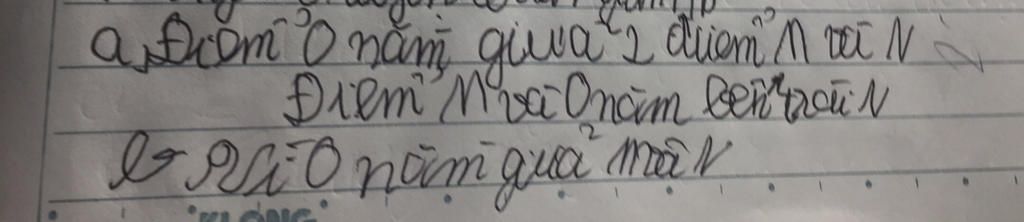 a, Điểm O nằm giữa 2 điểm M và N
Điểm M và O nằm bên trái N
Vì O nằm giữa M và N
KLONG